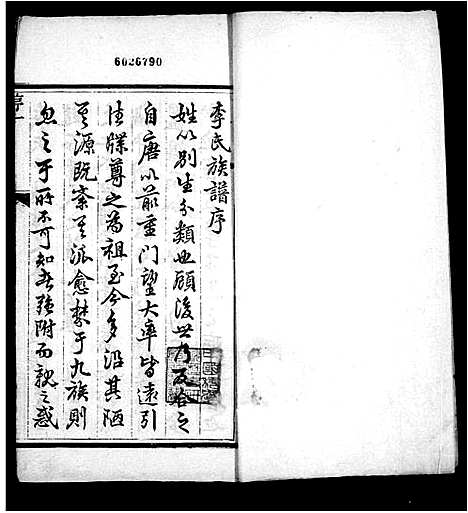 6026790
李氏族譜序
姓以別生分類也顧後世乃反合之
自唐以前重門望大率皆遠引
佳牒尊之為祖至今多沿其陋
其源既紊其派愈棼于九族則
忽之于所不可知者強附而親之惑
序一